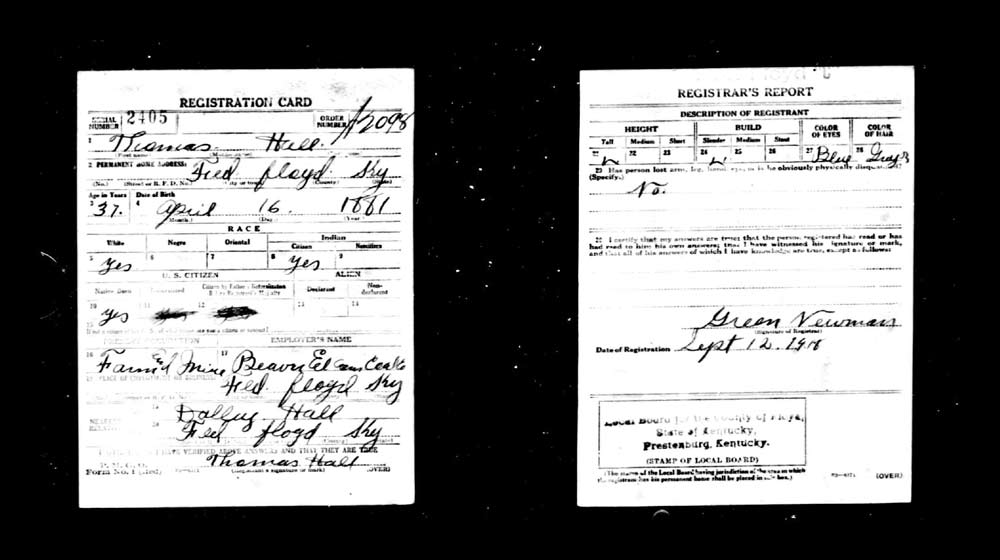 REGISTRATION CARD
SERIAL NUMBER 2405 ORDER NUMBER A2098
1 Thomas Hall
2 PERMANENT HOME ADDRESS:
Fed Floyd Ky
(No.) (Street or R. F. D. No.) (County)
Age in Years Date of Birth
3 37. 4 April 16. 1881
(Month.) (Day.) (Year.)
RACE
White Negro Oriental Indian
Citizen Noncitizen
5 Yes 6 7 8 Yes 9
U. S. CITIZEN ALIEN
Native Born Naturalized Citizen by Father's Naturalization Before Registrant's Majority Declarant Non-declarant
10 Yes 11 12 13 14
15
PRESENT OCCUPATION EMPLOYER'S NAME
16 17 Beaver
Fed. Floyd Ky
NEAREST RELATIVE 19 Hall
20 Fed Floyd Ky
I AFFIRM THAT I HAVE VERIFIED ABOVE ANSWERS AND THAT THEY ARE TRUE
P. M. G. O.
Form No. 1 (Red) Thomas Hall
(Registrant's signature or mark) (OVER)
REGISTRAR'S REPORT
DESCRIPTION OF REGISTRANT
HEIGHT BUILD COLOR OF EYES COLOR OF HAIR
Tall Medium Short Slender Medium Stout
21 22 23 24 25 26 27 Blue 28
29 Has person lost arm, leg, hand, eye, or is he obviously physically disqualified?
(Specify.)
No.
30 I certify that my answers are true; that the person registered has read or has
had read to him his own answers; that I have witnessed his signature or mark,
and that all of his answers of which I have knowledge are true, except as follows:
Green Newman
(Signature of Registrar)
Date of Registration Sept 12. 1918
Local Board for the County of Floyd,
State of Kentucky,
Prestonburg, Kentucky.
(STAMP OF LOCAL BOARD)
(The stamp of the Local Board having jurisdiction of the area in which
the registrant has his permanent home shall be placed in this box.)
(OVER)